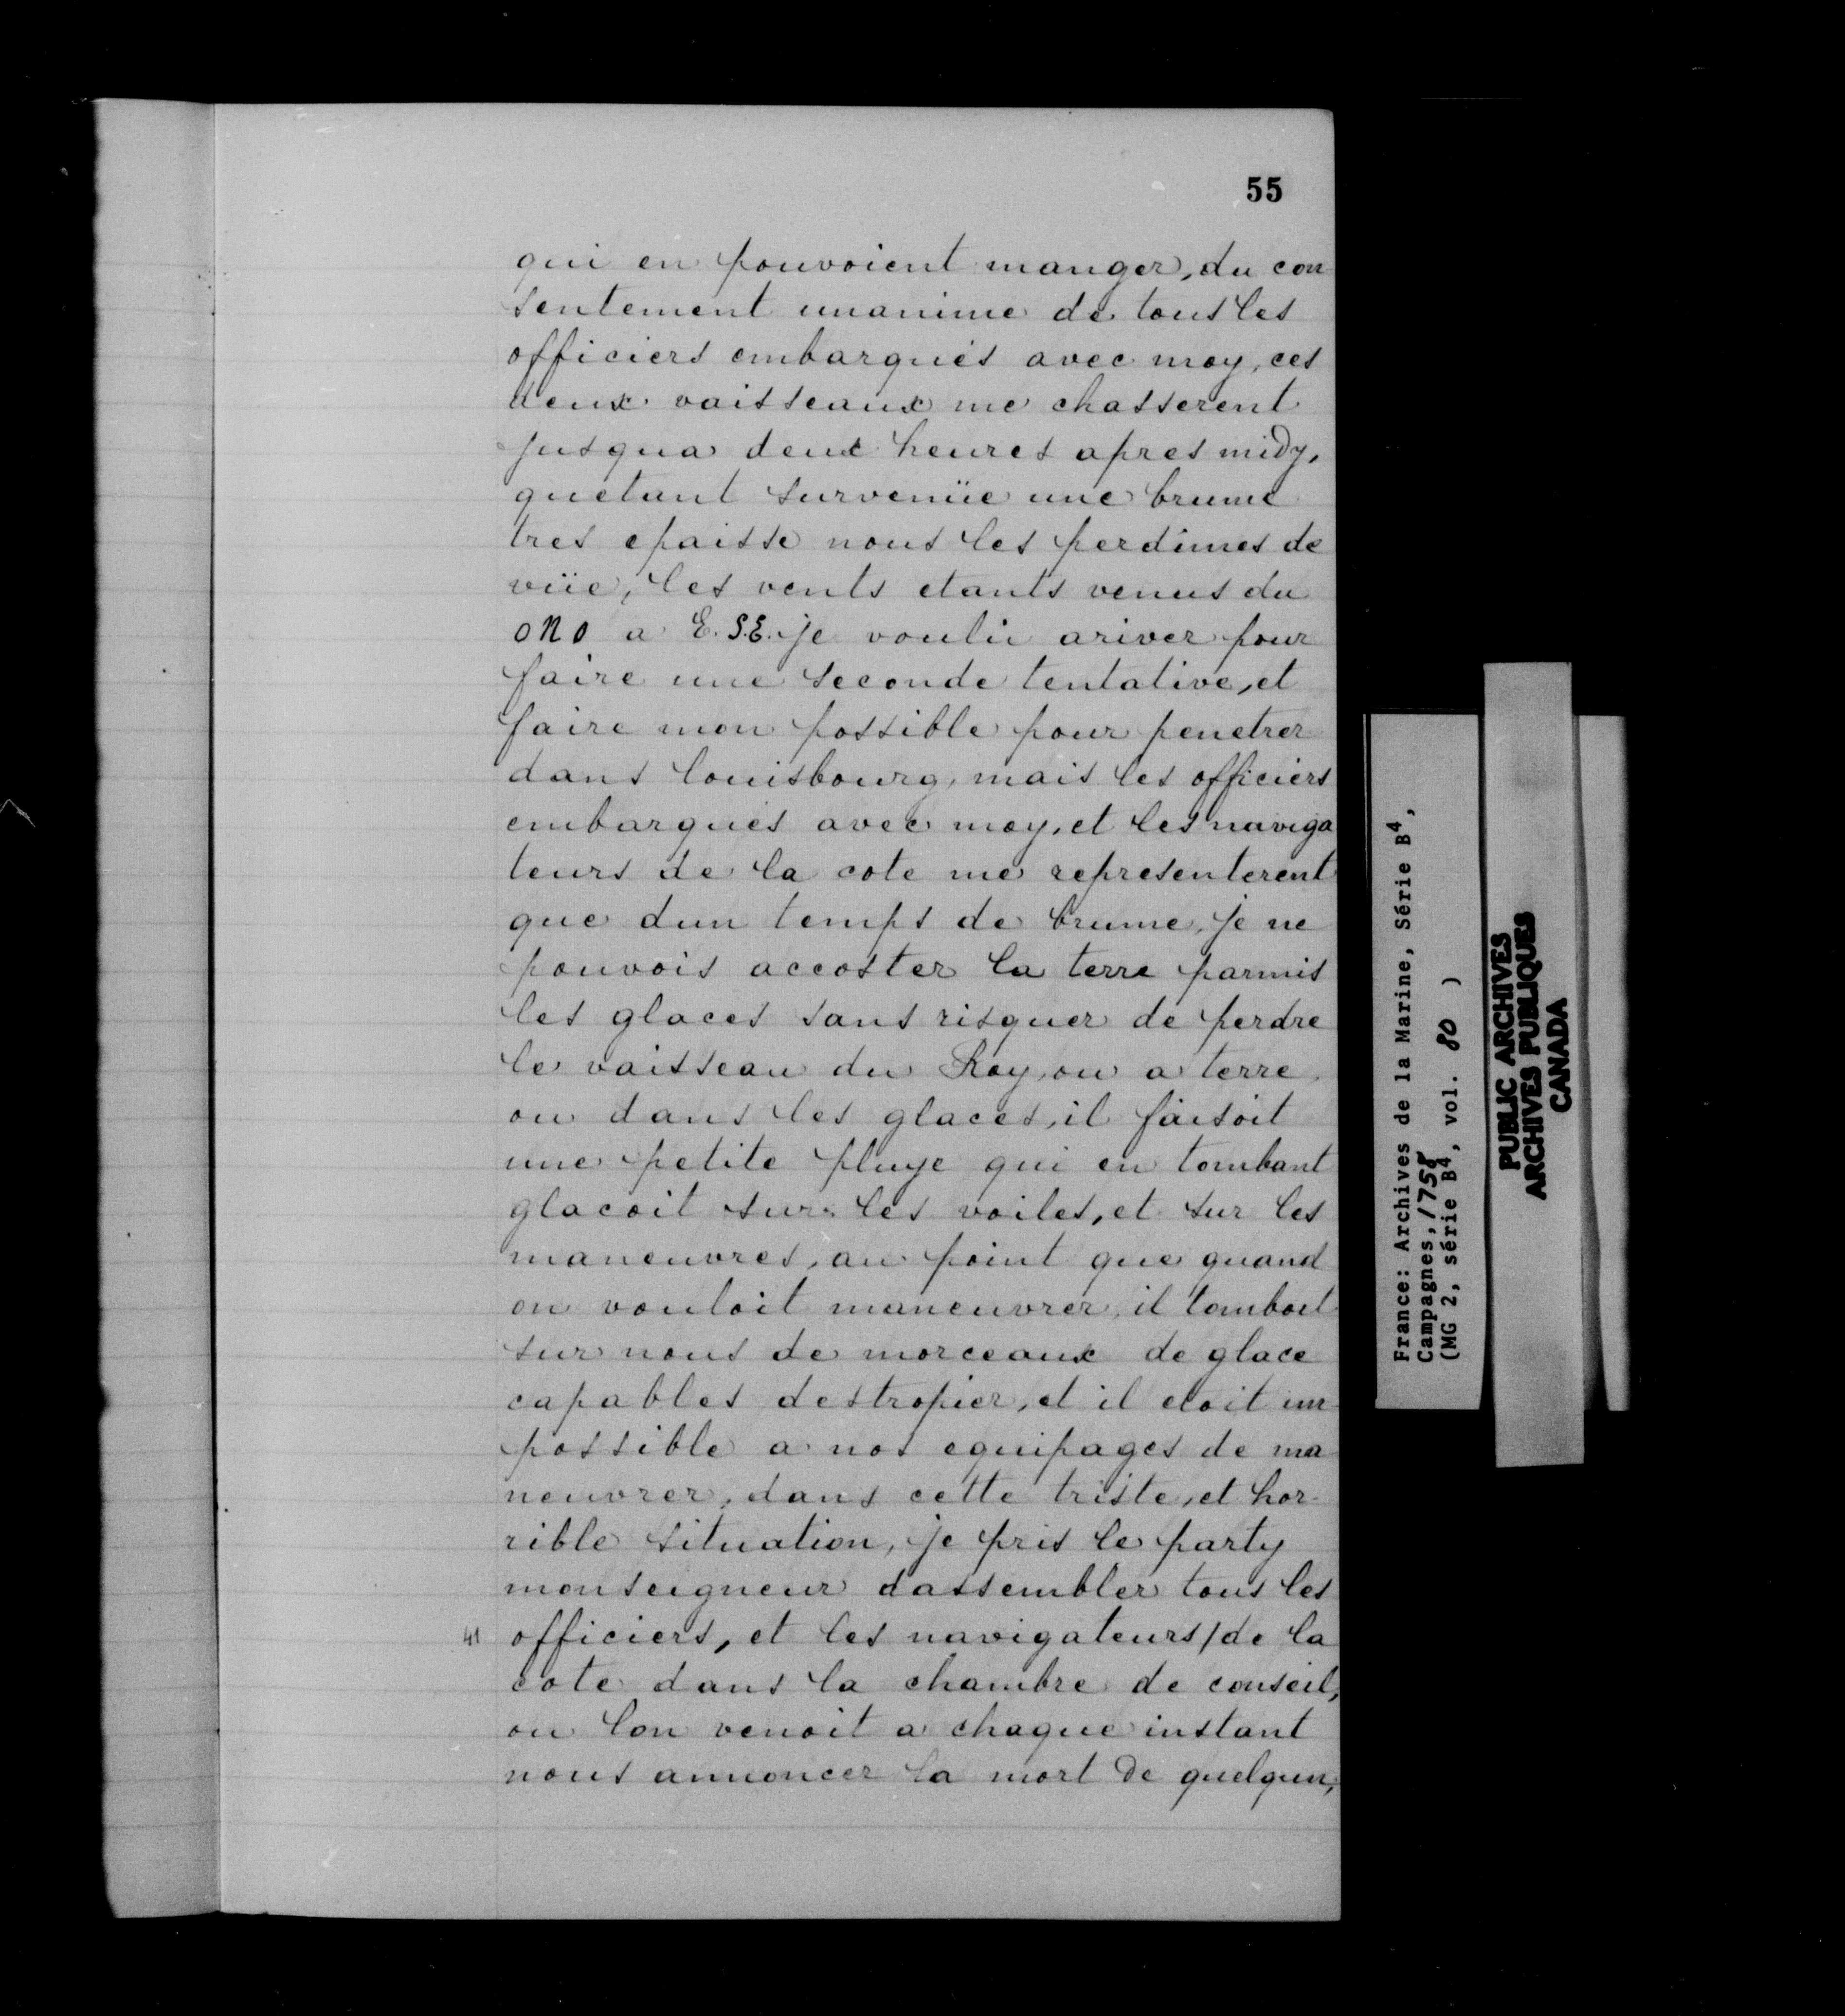 55
qui en pouvoient manger, du con
sentement unanime de tous les
officiers embarqués avec moy, ces
deux vaisseaux me chasserent
jusqua deux heures apres midy,
quetant survenüe une brume
tres epaisse nous les perdimes de
vüe, les vents etants venus du
ONO a E.S.E. je voulu ariver pour
faire une seconde tentative, et
faire mon possible pour penetrer
dans louisbourg, mais les officiers
embarqués avec moy, et les naviga
teurs de la cote me representerent
que dun temps de brume, je ne
pouvois accoster la terre parmis
les glaces sans risquer de perdre
le vaisseau du Roy, ou a terre,
ou dans les glaces, il faisoit
une petite pluye qui en tombant
glacoit sur les voiles, et sur les
maneuvres, au point que quand
on vouloit maneuvrer, il tomboit
sur nous de morceaux de glace
capables destropier, et il etoit im
possible a nos equipages de ma
neuvrer, dans cette triste, et hor-
rible situation, je pris le party
monseigneur dassembler tous les
41 officiers, et les navigateurs/de la
cote dans la chambre de conseil,
ou lon venoit a chaque instant
nous annoncer la mort de quelqun,
France: Archives de la Marine, Série B4,
Campagnes, 1758
(MG 2, série B4, vol. 80 )
PUBLIC ARCHIVES
ARCHIVES PUBLIQUES
CANADA